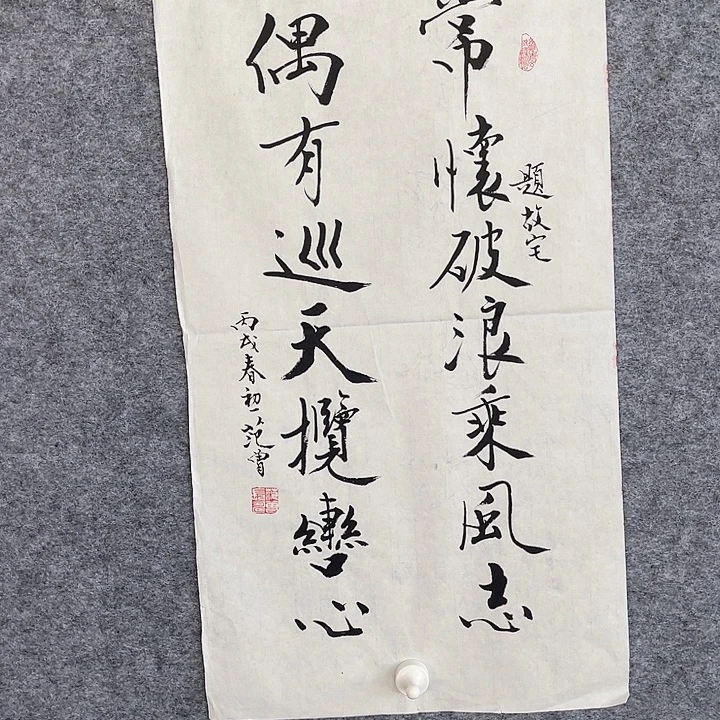 常懷破浪乘風志
題故宅
偶有巡天攬轡心
丙戌春初
范曾